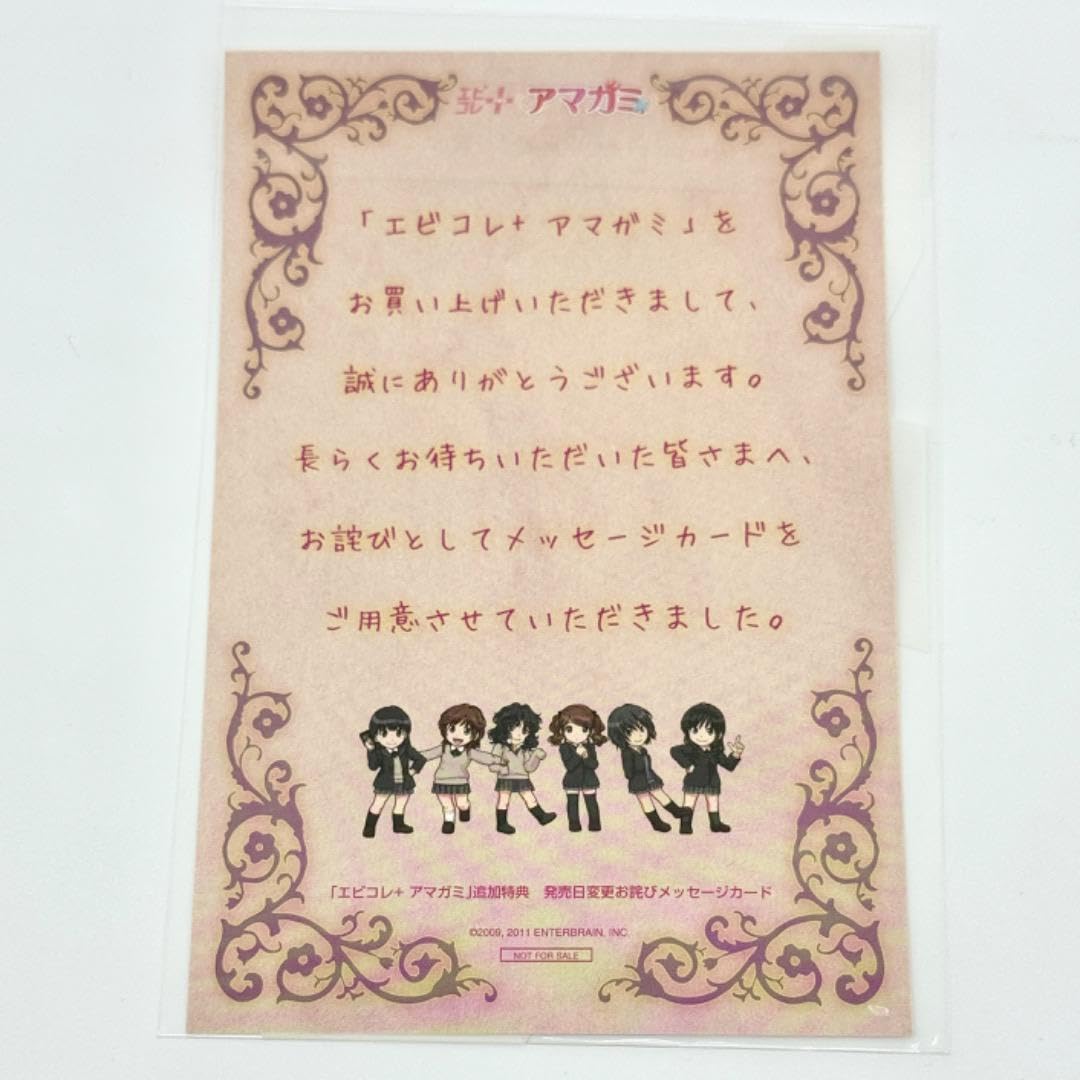 エビコレ+ アマガミ
「エビコレ+ アマガミ」を
お買い上げいただきまして、
誠にありがとうございます。
長らくお待ちいただいた皆さまへ、
お詫びとしてメッセージカードを
ご用意させていただきました。
「エビコレ+ アマガミ」追加特典 発売日変更お詫びメッセージカード
©2009, 2011 ENTERBRAIN, INC.
NOT FOR SALE